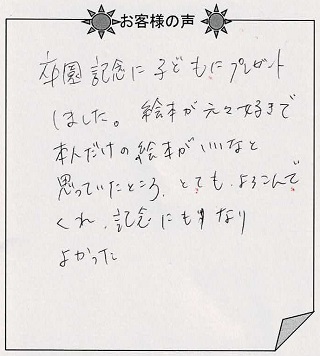 お客様の声
卒園記念に子どもにプレゼント
しました。絵本が元々好きで
本人だけの絵本がいいなと
思っていたところ、とても、よろこんで
くれ、記念にもなり
よかった